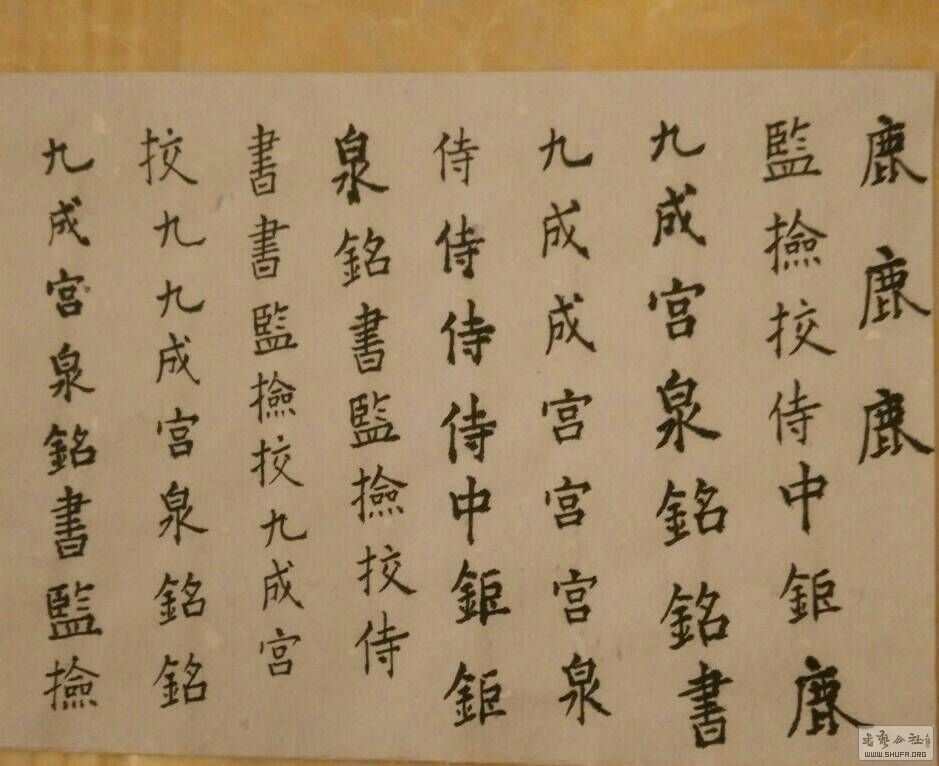 鹿鹿鹿
監撿挍侍中鉅鹿
九成宫泉銘銘書
九成成宫宫宫泉
侍侍侍侍中鉅鉅
泉銘書監撿挍侍
書書監撿挍九成宫
挍九九成宫泉銘銘
九成宫泉銘書監撿
书艺公社
WWW.SHUFA.ORG